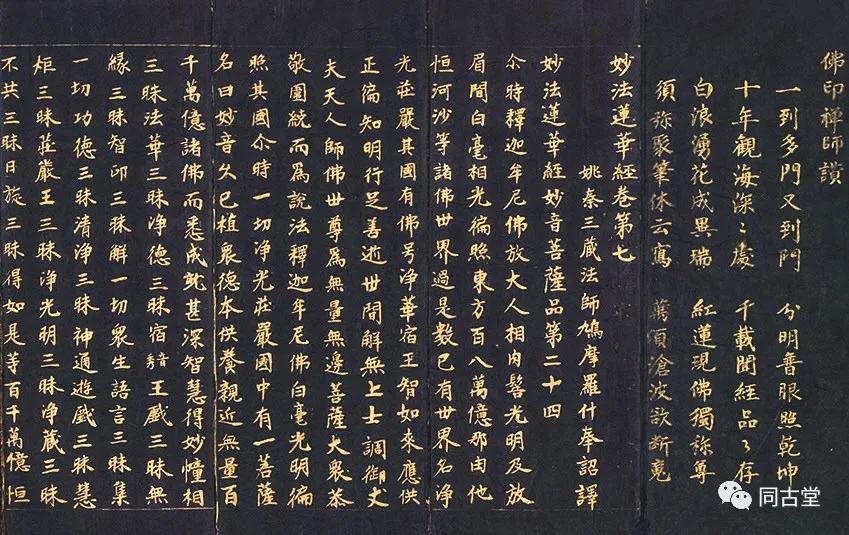 佛印禅師讃
一到多門又到門　分明普眼照乾坤
十年觀海深〻處　千載聞經品〻存
白浪湧花成異瑞　紅蓮現佛獨称尊
須弥聚筆休云寫　萬頃滄波欲斷
妙法蓮華經卷第七
姚秦三藏法師鳩摩羅什奉詔譯
妙法蓮華經妙音菩薩品第二十四
尒時釋迦牟尼佛放大人相肉髻光明及放
眉間白毫相光徧照東方百八萬億那由他
恒河沙等諸佛世界過是數已有世界名淨
光莊嚴其國有佛号淨華宿王智如來應供
正徧知明行足善逝世間解無上士調御丈
夫天人師佛世尊爲無量無邊菩薩大衆恭
敬圍繞而爲說法釋迦牟尼佛白毫光明徧
照其國尒時一切淨光莊嚴國中有一菩薩
名曰妙音久已植衆德本供養親近無量百
千萬億諸佛而悉成就甚深智慧得妙幢相
三昧法華三昧淨德三昧宿王戲三昧無
緣三昧智印三昧解一切衆生語言三昧集
一切功德三昧清淨三昧神通遊戲三昧慧
炬三昧莊嚴王三昧淨光明三昧淨藏三昧
不共三昧日旋三昧得如是等百千萬億恒
同古堂